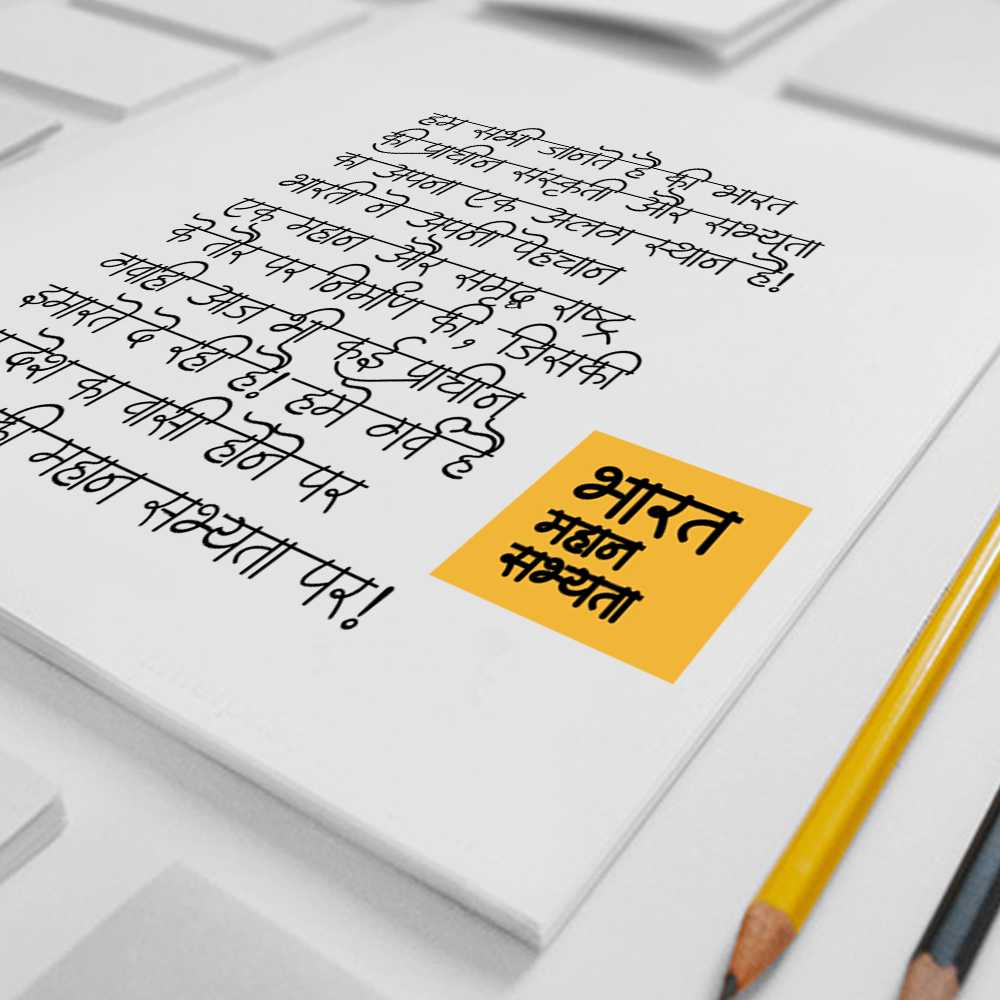 हम सभी जानते है की भारत
की प्राचीन संस्कृती और सभ्यता
का अपना एक अलग स्थान है!
भारती ने अपनी पेहचान
एक महान और समृद्ध राष्ट्र
के तौर पर निर्माण की, जिसकी
गवाही आज भी कई प्राचीन
इमारते दे रही है! हमे गर्व है
देश का वासी होने पर
की महान सभ्यता पर!
भारत
महान
सभ्यता